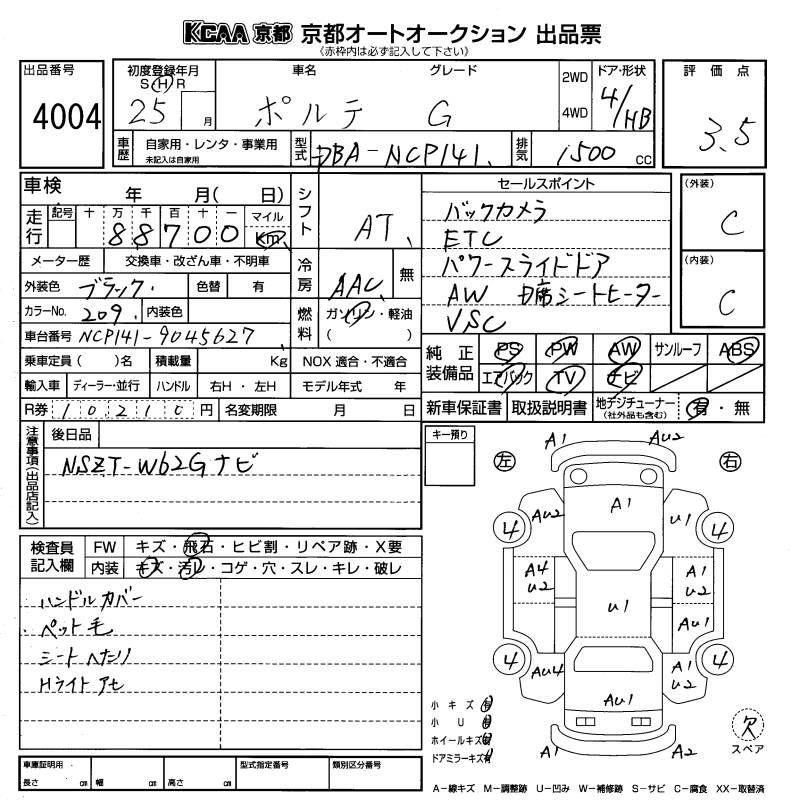 KCAA 京都 京都オートオークション 出品票
《赤枠内は必ず記入して下さい》
出品番号 4004
初度登録年月 S H R 25 月
車名 ポルテ
グレード G
2WD
4WD
ドア・形状 4/HB
評価点 3.5
車歴 自家用・レンタ・事業用
未記入は自家用
型式 DBA-NCP141
排気 1500 CC
車検 年 月( 日)
走行 記号 十 万 千 百 十 一 マイル
88700 km
メーター歴 交換車・改ざん車・不明車
外装色 ブラック 色替 有
カラーNo. 209 内装色
車台番号 NCP141-9045627
乗車定員 ( )名 積載量 Kg
輸入車 ディーラー・並行 ハンドル 右H・左H
R券 10210 円 名変期限 月 日
シフト AT
冷房 AAC 無
燃料 ガソリン・軽油
( )
NOX 適合・不適合
モデル年式 年
セールスポイント
バックカメラ
ETC
パワースライドドア
AW 1席シートヒーター
VSC
(外装) C
(内装) C
純正装備品 PS PW AW サンルーフ ABS
エアバック TV ナビ
新車保証書 取扱説明書 地デジチューナー(社外品も含む) 有・無
注意事項(出品店記入)
後日品
NSZT-W62Gナビ
キー預り
左
右
A1 AU2
A1
AU2 U1
4 4
A4 U2
A1 U2
U1
AU1
4 4
AU4
A1 U2
AU1
A1 A2
検査員記入欄
FW キズ・飛石・ヒビ割・リペア跡・X要
内装 キズ・汚レ・コゲ・穴・スレ・キレ・破レ
ハンドルカバー
ペット毛
シートへたり
Hライトアセ
小キズ 有
小U 有
ホイールキズ 有
ドアミラーキズ 有
欠
スペア
車庫証明用
長さ cm 幅 cm 高さ cm
型式指定番号
類別区分番号
A-線キズ M-調整跡 U-凹み W-補修跡 S-サビ C-腐食 XX-取替済